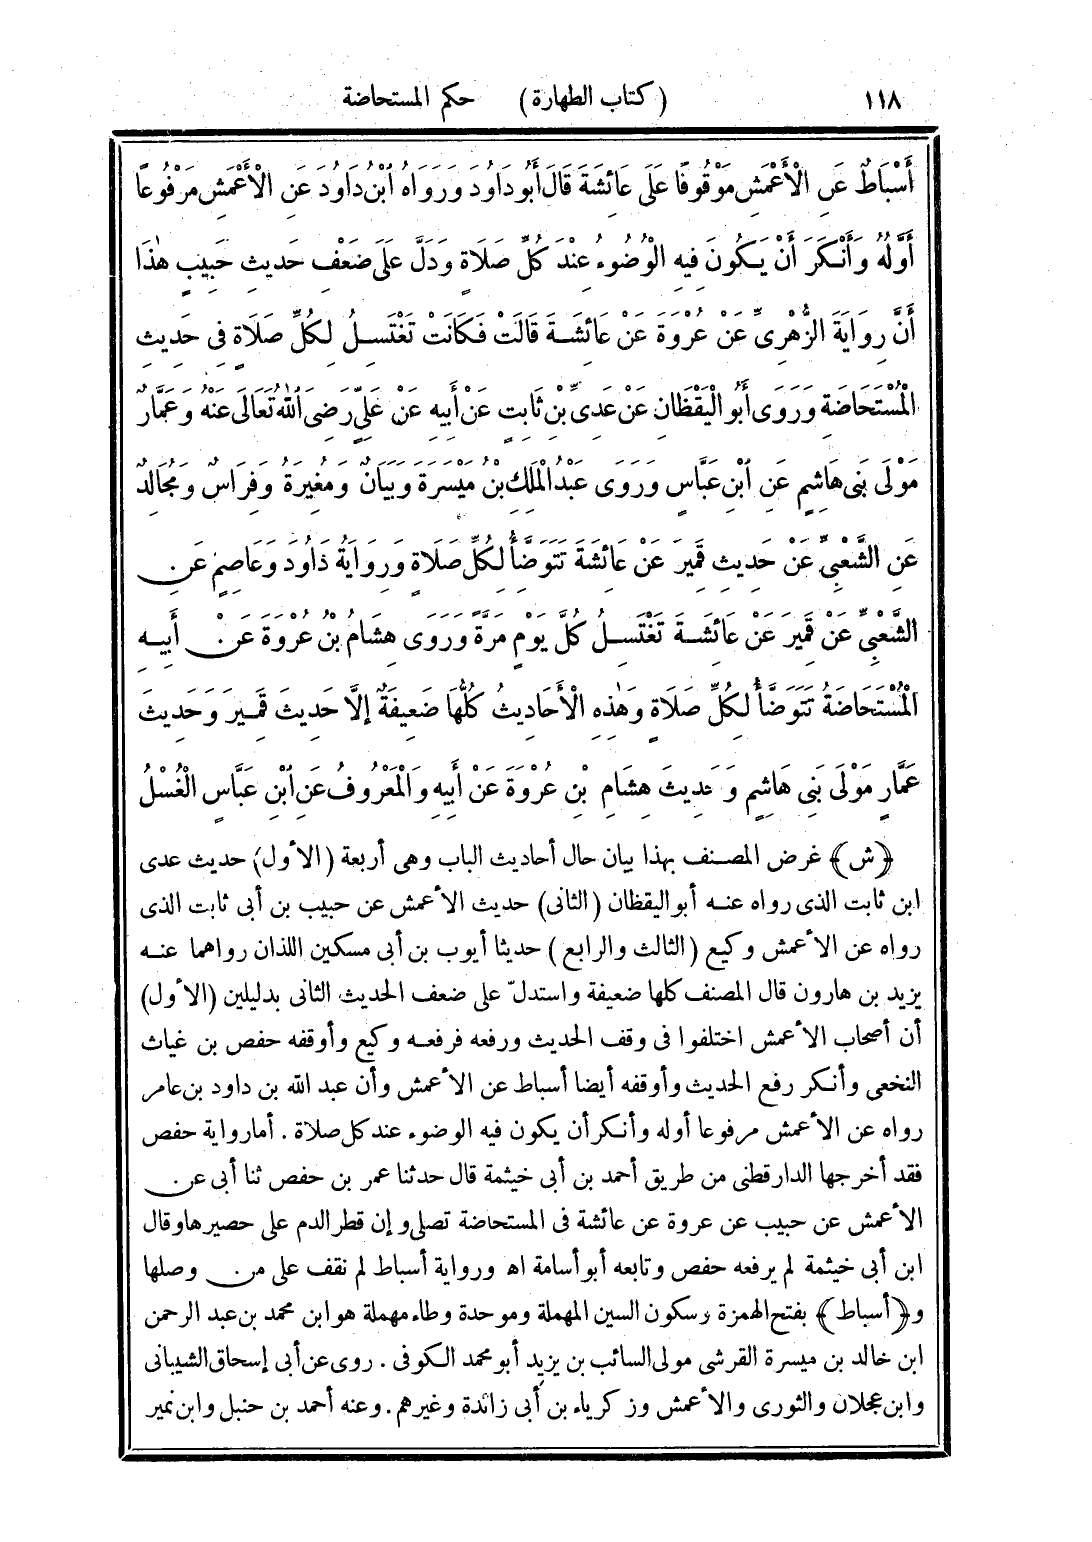 ١١٨ (كتاب الطهارة) حكم المستحاضة
أَسْبَاطٌ عَنِ الْأَعْمَشِ مَوْقُوفًا عَلَى عَائِشَةَ قَالَ أَبُو دَاوُدَ وَرَوَاهُ ابْنُ دَاوُدَ عَنِ الْأَعْمَشِ مَرْفُوعًا
أَوَّلُهُ وَأَنْكَرَ أَنْ يَكُونَ فِيهِ الْوُضُوءُ عِنْدَ كُلِّ صَلَاةٍ وَدَلَّ عَلَى ضَعْفِ حَدِيثِ حَبِيبٍ هٰذَا
أَنَّ رِوَايَةَ الزُّهْرِىِّ عَنْ عُرْوَةَ عَنْ عَائِشَةَ قَالَتْ فَكَانَتْ تَغْتَسِلُ لِكُلِّ صَلَاةٍ فِى حَدِيثِ
الْمُسْتَحَاضَةِ وَرَوَى أَبُو الْيَقْظَانِ عَنْ عَدِىِّ بْنِ ثَابِتٍ عَنْ أَبِيهِ عَنْ عَلِىٍّ رَضِىَ اللّٰهُ تَعَالَى عَنْهُ وَعَمَّارٌ
مَوْلَى بَنِى هَاشِمٍ عَنِ ابْنِ عَبَّاسٍ وَرَوَى عَبْدُ الْمَلِكِ بْنُ مَيْسَرَةَ وَبَيَانٌ وَمُغِيرَةُ وَفِرَاسٌ وَمُجَالِدٌ
عَنِ الشَّعْبِىِّ عَنْ حَدِيثِ قَمِيرَ عَنْ عَائِشَةَ تَتَوَضَّأُ لِكُلِّ صَلَاةٍ وَرِوَايَةُ دَاوُدَ وَعَاصِمٍ عَنِ
الشَّعْبِىِّ عَنْ قَمِيرَ عَنْ عَائِشَةَ تَغْتَسِلُ كُلَّ يَوْمٍ مَرَّةً وَرَوَى هِشَامُ بْنُ عُرْوَةَ عَنْ أَبِيهِ
الْمُسْتَحَاضَةُ تَتَوَضَّأُ لِكُلِّ صَلَاةٍ وَهٰذِهِ الْأَحَادِيثُ كُلُّهَا ضَعِيفَةٌ إِلَّا حَدِيثَ قَمِيرَ وَحَدِيثَ
عَمَّارٍ مَوْلَى بَنِى هَاشِمٍ وَحَدِيثَ هِشَامِ بْنِ عُرْوَةَ عَنْ أَبِيهِ وَالْمَعْرُوفُ عَنِ ابْنِ عَبَّاسٍ الْغُسْلُ
﴿ش﴾ غرض المصنف بهذا بيان حال أحاديث الباب وهى أربعة (الأول) حديث عدى
ابن ثابت الذى رواه عنه أبو اليقظان (الثانى) حديث الأعمش عن حبيب بن أبى ثابت الذى
رواه عن الأعمش وكيع (الثالث والرابع) حديثا أيوب بن أبى مسكين اللذان رواهما عنه
يزيد بن هارون قال المصنف كلها ضعيفة واستدلّ على ضعف الحديث الثانى بدليلين (الأول)
أن أصحاب الأعمش اختلفوا فى وقف الحديث ورفعه فرفعه وكيع وأوقفه حفص بن غياث
النخعى وأنكر رفع الحديث وأوقفه أيضا أسباط عن الأعمش وأن عبد الله بن داود بن عامر
رواه عن الأعمش مرفوعا أوله وأنكر أن يكون فيه الوضوء عند كل صلاة . أما رواية حفص
فقد أخرجها الدارقطنى من طريق أحمد بن أبى خيثمة قال حدثنا عمر بن حفص ثنا أبى عن
الأعمش عن حبيب عن عروة عن عائشة فى المستحاضة تصلى وإن قطر الدم على حصيرها وقال
ابن أبى خيثمة لم يرفعه حفص وتابعه أبو أسامة اه ورواية أسباط لم نقف على من وصلها
و﴿أسباط﴾ بفتح الهمزة وسكون السين المهملة وموحدة وطاء مهملة هو ابن محمد بن عبد الرحمن
ابن خالد بن ميسرة القرشى مولى السائب بن يزيد أبو محمد الكوفى . روى عن أبى إسحاق الشيبانى
وابن عجلان والثورى والأعمش وزكرياء بن أبى زائدة وغيرهم . وعنه أحمد بن حنبل وابن نمير